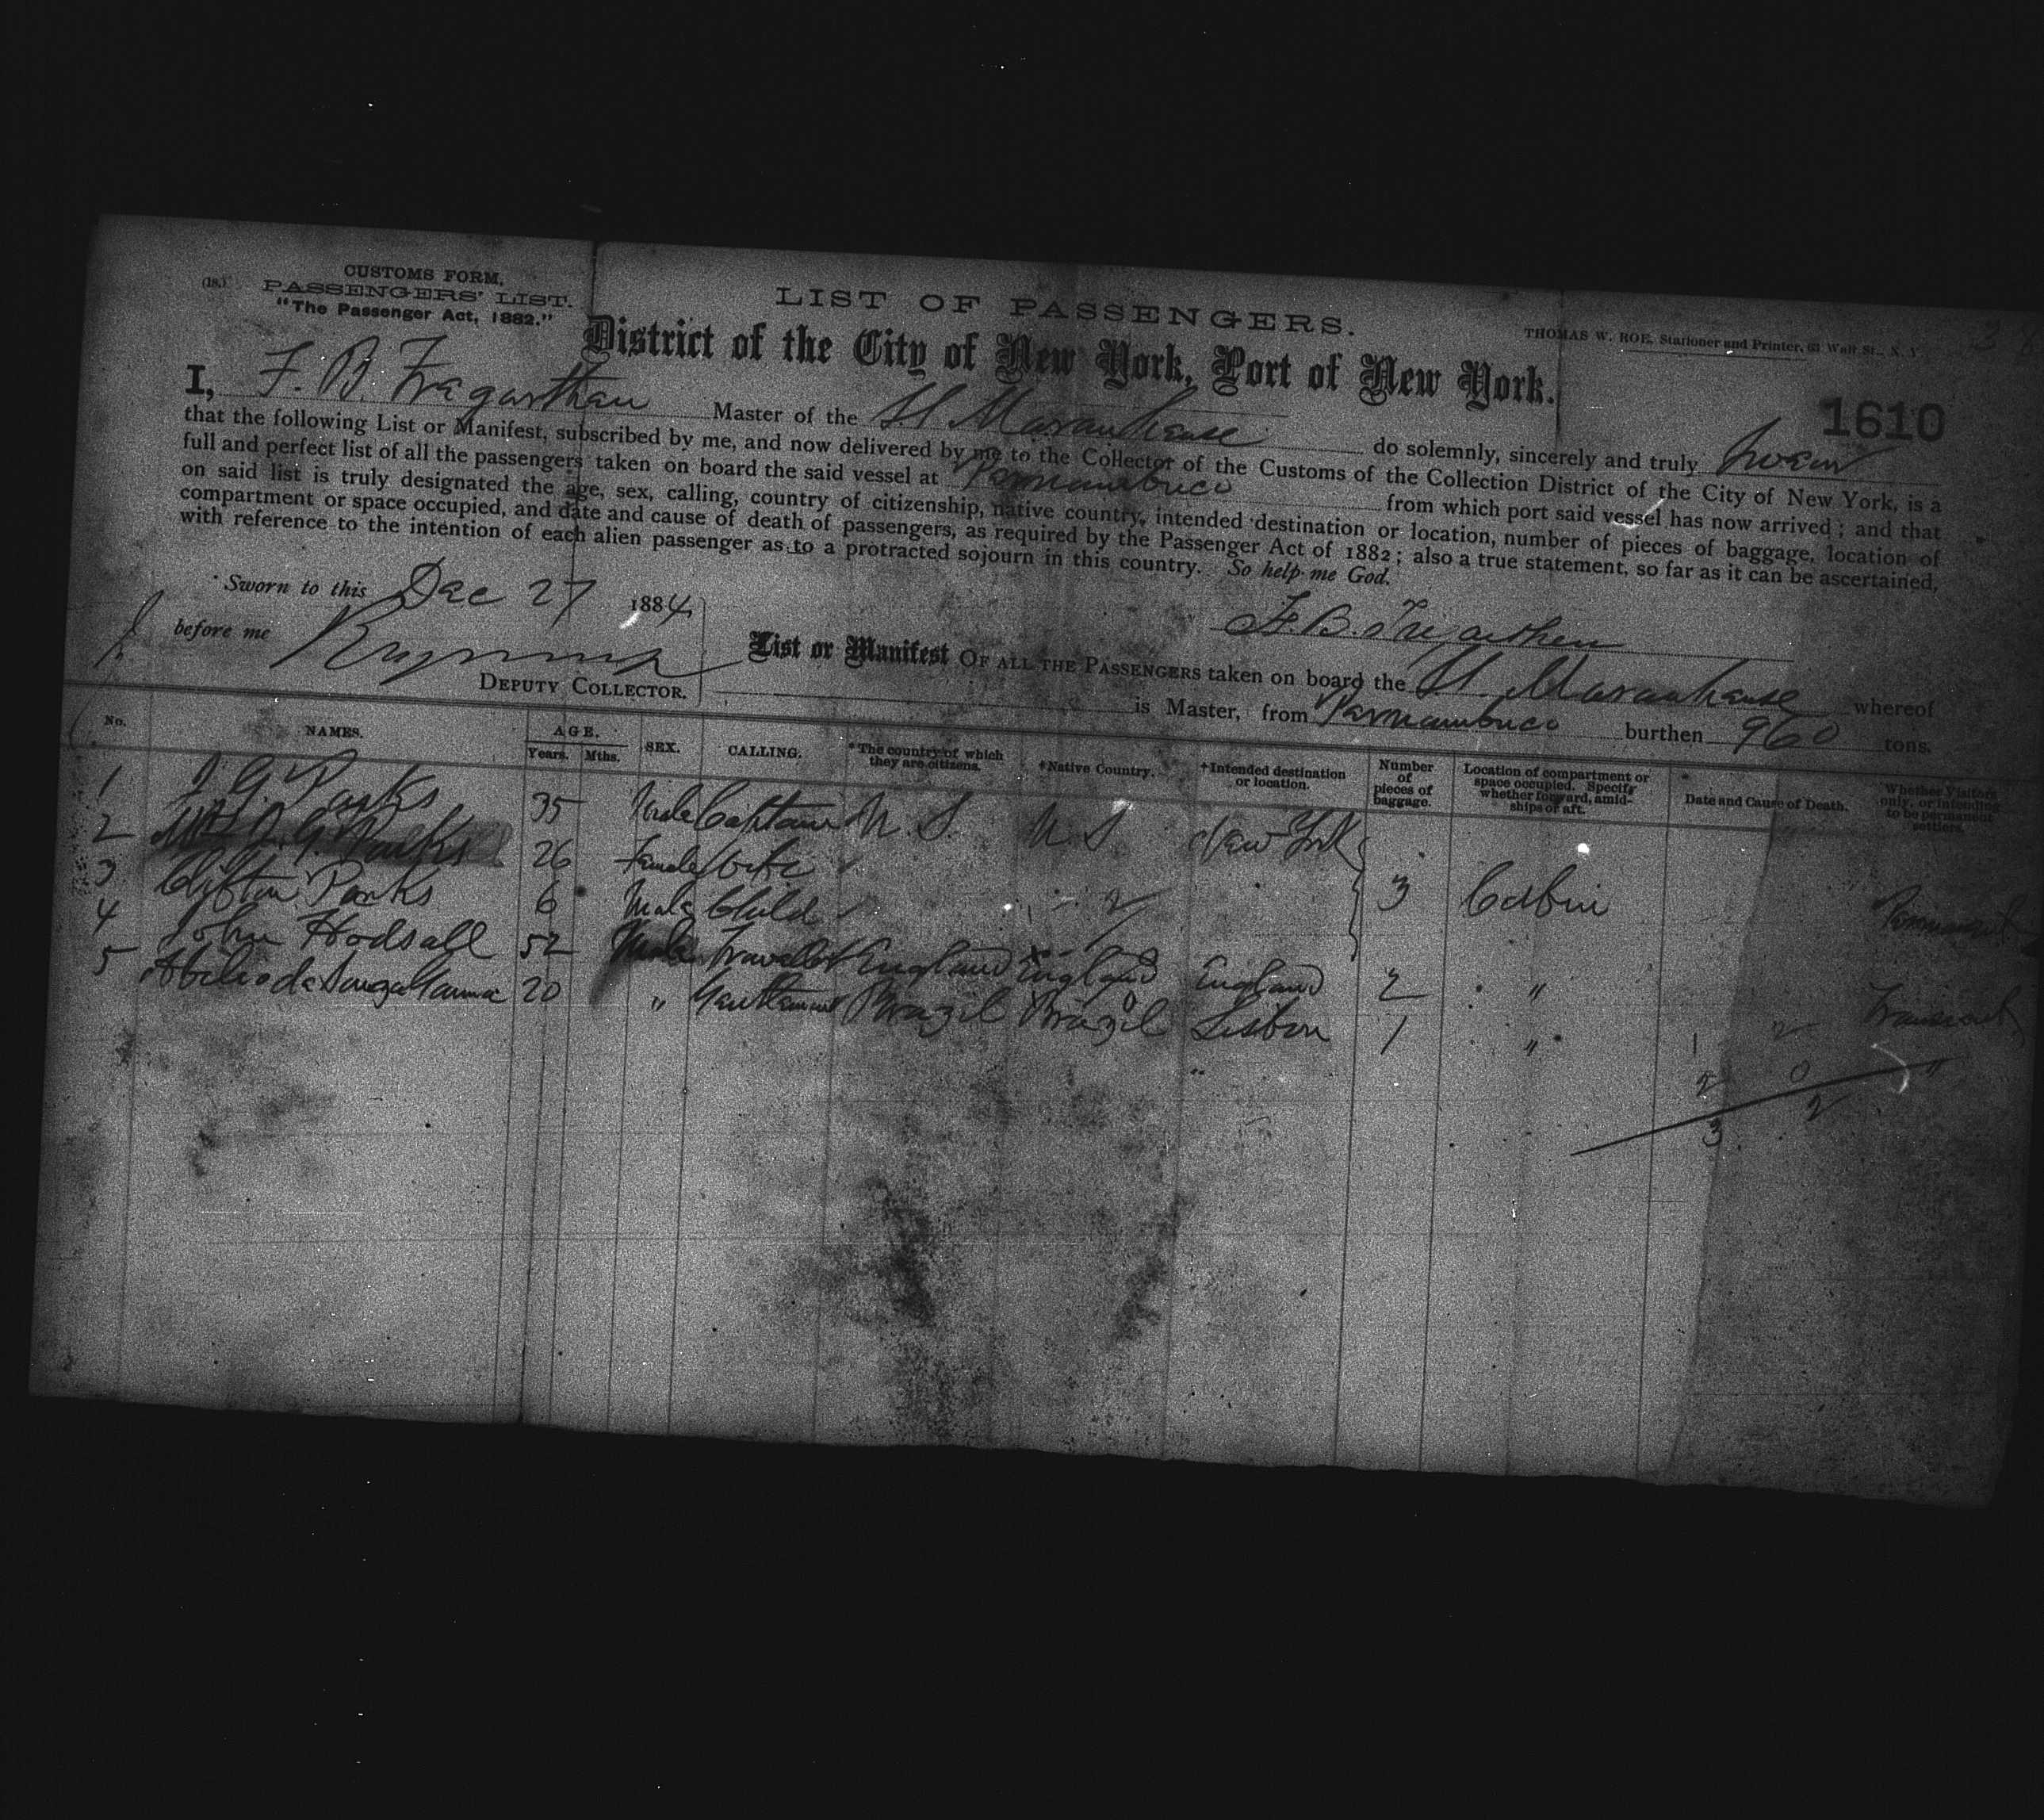 (18.)
CUSTOMS FORM,
PASSENGERS' LIST.
"The Passenger Act, 1882."
LIST OF PASSENGERS.
THOMAS W. ROE, Stationer and Printer, 61 Wall St., N. Y.
District of the City of New York, Port of New York.
1610
I, F. B. Master of the do solemnly, sincerely and truly Swear
that the following List or Manifest, subscribed by me, and now delivered by me to the Collector of the Customs of the Collection District of the City of New York, is a
full and perfect list of all the passengers taken on board the said vessel at Pernambuco from which port said vessel has now arrived; and that
on said list is truly designated the age, sex, calling, country of citizenship, native country, intended destination or location, number of pieces of baggage, location of
compartment or space occupied, and date and cause of death of passengers, as required by the Passenger Act of 1882; also a true statement, so far as it can be ascertained,
with reference to the intention of each alien passenger as to a protracted sojourn in this country. So help me God.
Sworn to this Dec 27 1884
before me
DEPUTY COLLECTOR.
List or Manifest OF ALL THE PASSENGERS taken on board the whereof
is Master, from Pernambuco burthen 960 tons.
No. NAMES. AGE. Years. Mths. SEX. CALLING. *The country of which they are citizens. †Native Country. †Intended destination or location. Number of pieces of baggage. Location of compartment or space occupied. Specify whether forward, amidships or aft. Date and Cause of Death. Whether Visitors only, or intending to be permanent settlers.
1 G Parks 35 Male Captain New York
2 Mrs G Parks 26 Female Wife
3 Clifton Parks 6 Male Child 3 Cabin
4 John Hodsall 52 Male Traveller England England England 2 "
5 20 " Gentleman Brazil Brazil Lisbon 1 "